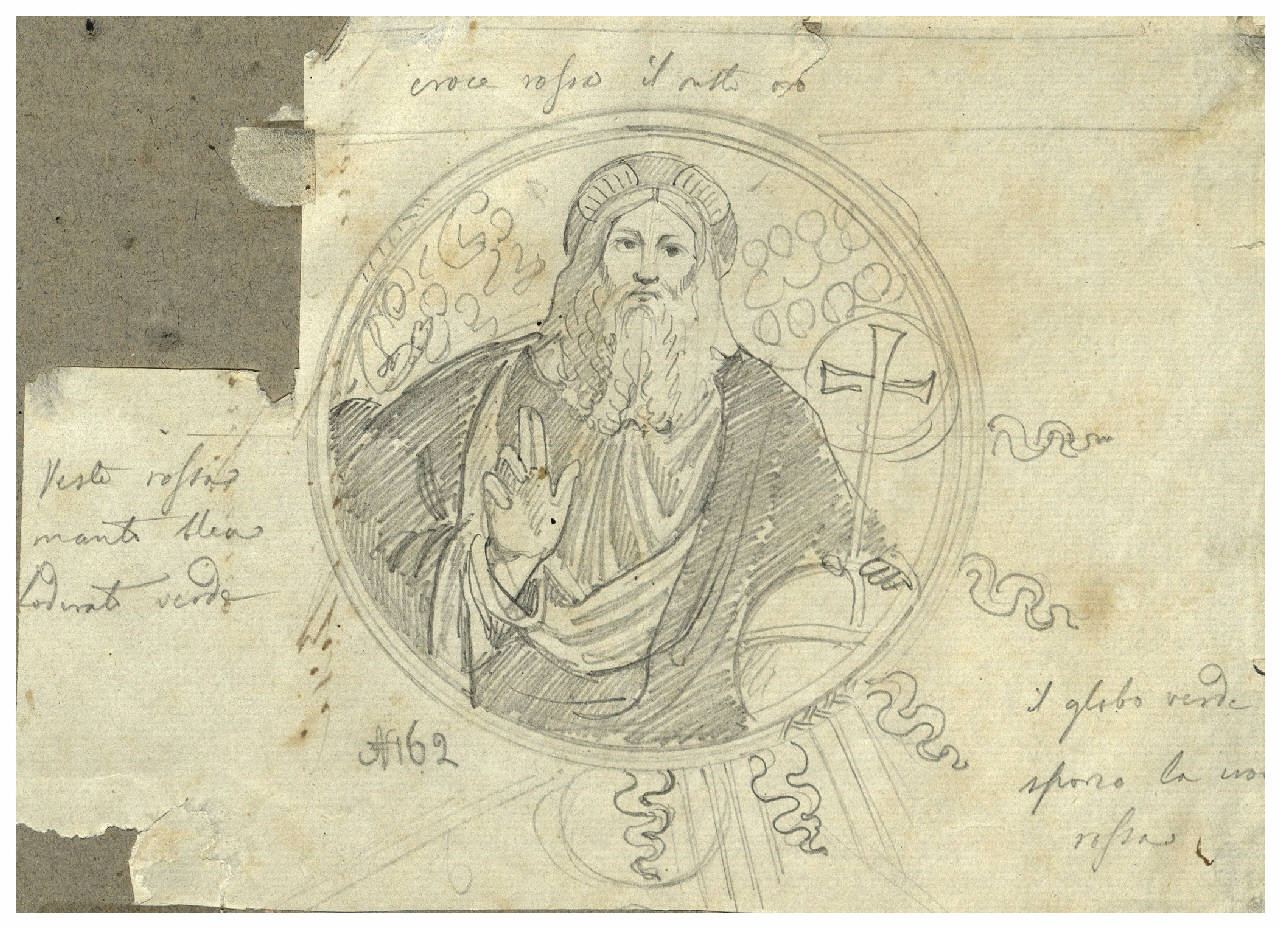 croce rossa il resto oro
Veste rossa
manto bleu
foderato verde
A 162
il globo verde
sporco la
rossa